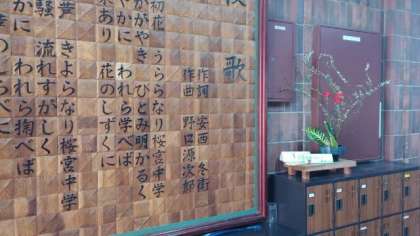 歌
作詞 安西 冬衛
作曲 野口源次郎
初花 うららなり 桜宮中学
かがやき ひとみ明かるく
やかに われら学べば
あり 花のしずくに
きよらなり 桜宮中学
騒 流れすがしく
かに われら掬べば
しらべに